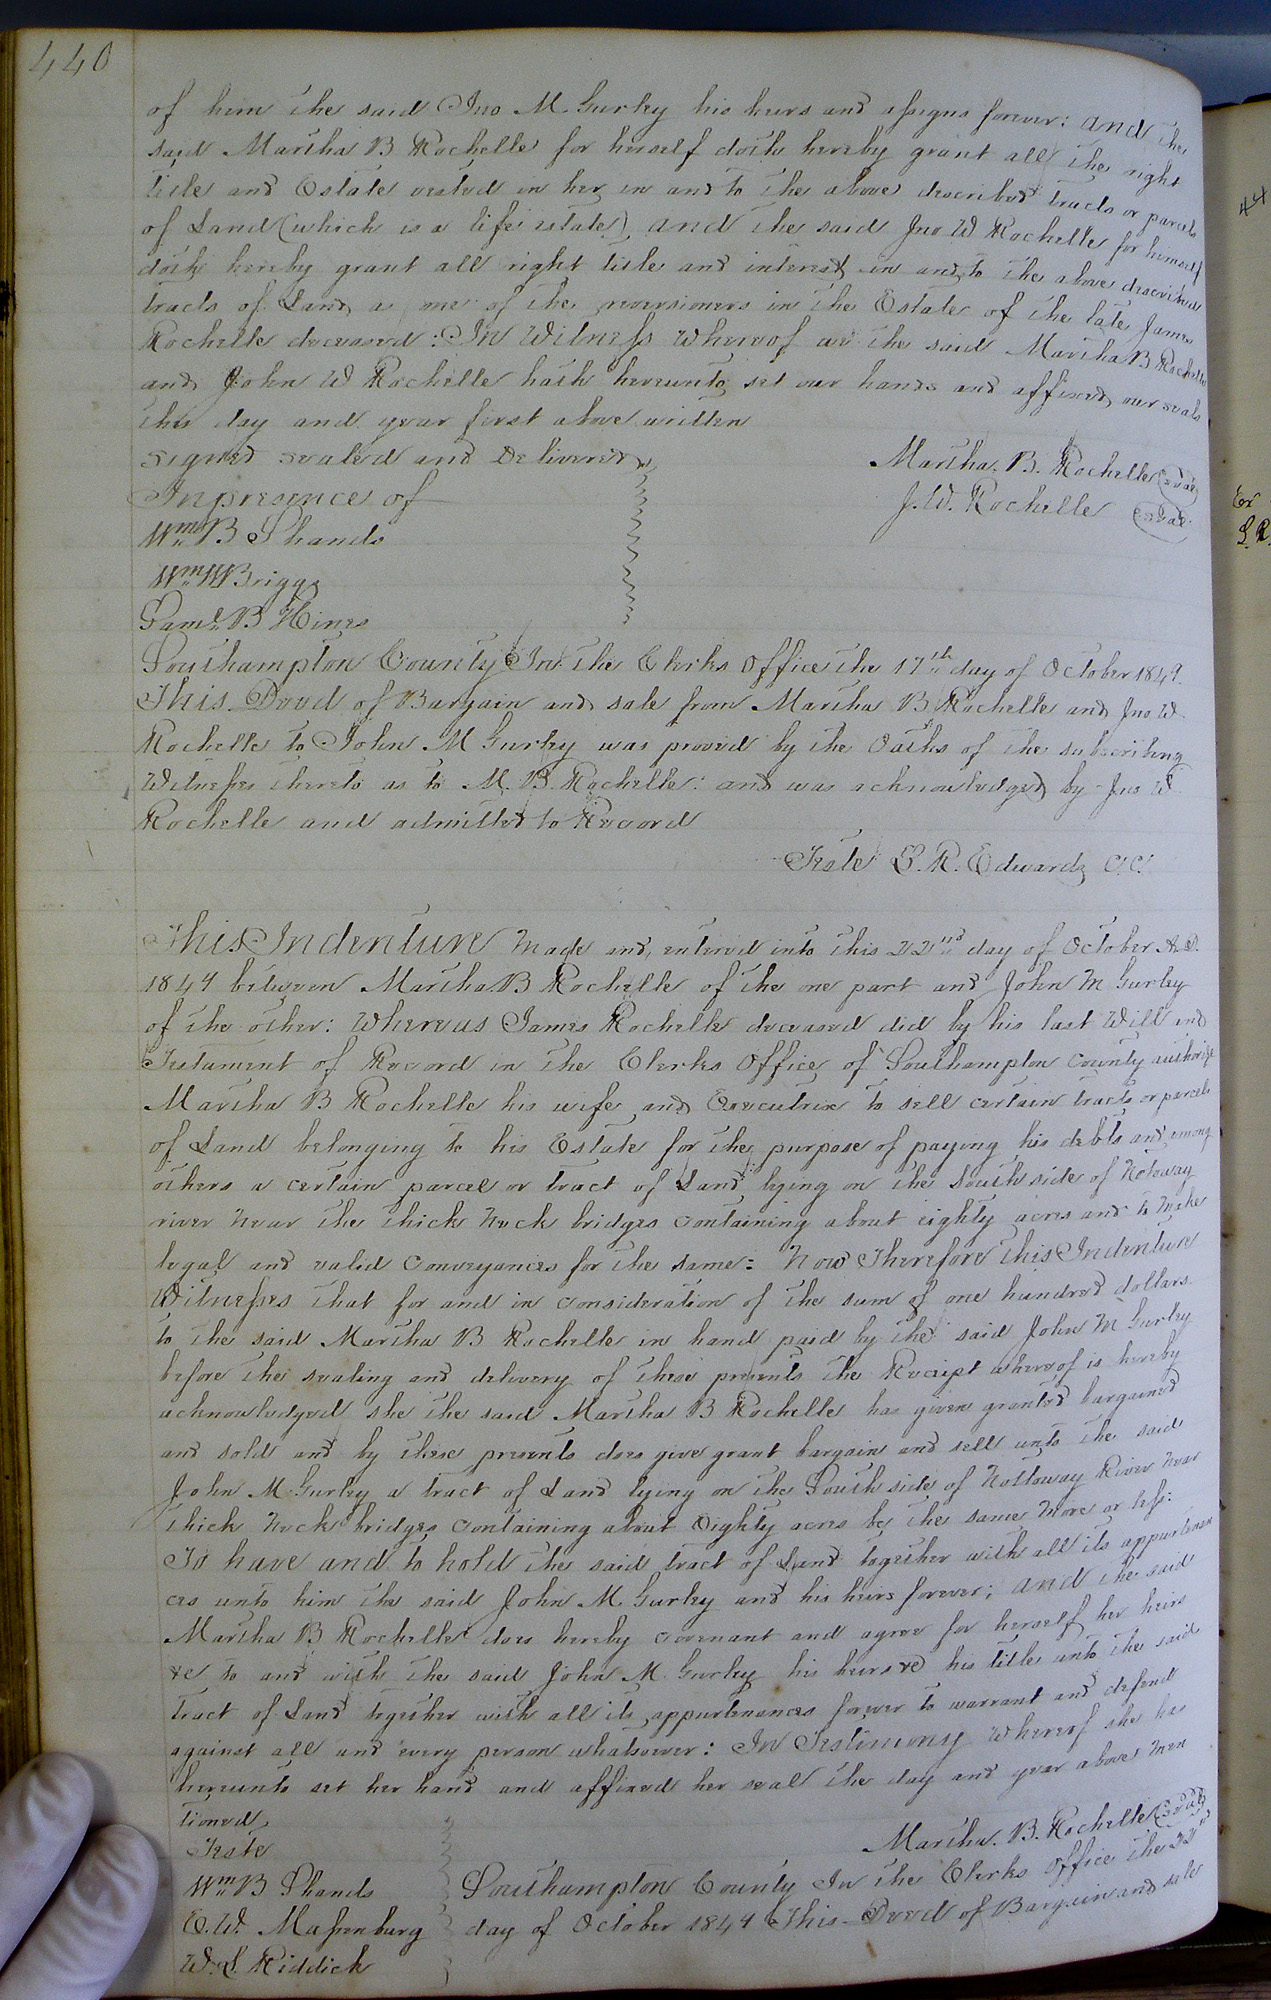 440
of him the said Jno M Gurley his heirs and assigns forever: and the
said Martha B Rochelle for herself doth hereby grant all the right
title and Estate vested in her in and to the above described tracts or parcels
of Land (which is a life estate) and the said Jno W Rochelle for himself
doth hereby grant all right title and interest in and to the above described
tracts of Land as one of the reversioners in the Estate of the late James
Rochelle deceased: In Witness Whereof we the said Martha B Rochelle
and John W Rochelle hath hereunto set our hands and affixed our seals
this day and year first above written
signed sealed and Delivered
In presence of
Martha. B. Rochelle (seal)
J. W. Rochelle (seal)
Wm B Shands
Wm W Briggs
Saml B Hines
Southampton County In the Clerks Office the 17th day of October 1849.
This Deed of Bargain and sale from Martha B Rochelle and Jno W
Rochelle to John M Gurley was proved by the Oaths of the subscribing
Witnesses thereto as to M. B. Rochelle: and was acknowledged by Jno W
Rochelle and admitted to Record
Teste L. R. Edwards C.C.
This Indenture Made and entered into this 22nd day of October A.D.
1849 between Martha B Rochelle of the one part and John M Gurley
of the other: Whereas James Rochelle deceased did by his last Will and
Testament of Record in the Clerks Office of Southampton County authorize
Martha B Rochelle his wife and Executrix to sell certain tracts or parcels
of Land belonging to his Estate for the purpose of paying his debts and among
others a certain parcel or tract of Land lying on the South side of Notoway
river Near the thick Neck bridges containing about eighty acres and to Make
legal and valid Conveyances for the same: Now Therefore this Indenture
Witnesses that for and in consideration of the sum of one hundred dollars
to the said Martha B Rochelle in hand paid by the said John M Gurley
before the sealing and delivery of these presents the Receipt whereof is hereby
acknowledged she the said Martha B Rochelle has given granted bargained
and sold and by these presents does give grant bargain and sell unto the said
John M Gurley a tract of Land lying on the South side of Nottoway River Near
thick Neck bridges containing about Eighty acres be the same More or less:
To have and to hold the said tract of Land together with all its appurtenan
ces unto him the said John M. Gurley and his heirs forever; and the said
Martha B Rochelle does hereby covenant and agree for herself her heirs
&c to and with the said John M. Gurley his heirs &c his title unto the said
tract of Land together with all its appurtenances forever to warrant and defend
against all and every person whatsoever: In Testimony Whereof she has
hereunto set her hand and affixed her seal the day and year above Men
tioned
Martha. B. Rochelle (seal)
Teste
Wm B Shands
E. W. Massenburg
W. S. Riddick
Southampton County In the Clerks Office the 22nd
day of October 1849 This Deed of Bargain and sale
44